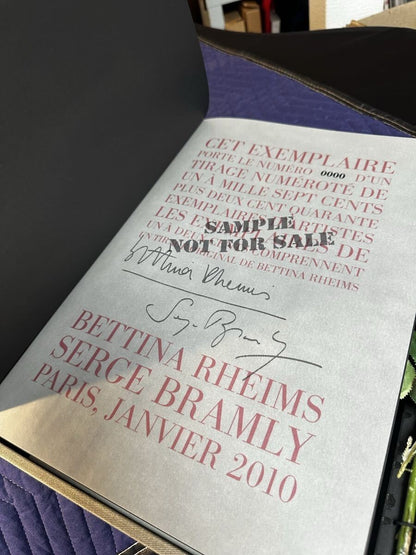 CET EXEMPLAIRE
PORTE LE NUMÉRO 0000 D'UN
TIRAGE NUMÉROTÉ DE
UN À MILLE SEPT CENTS
PLUS DEUX CENT QUARANTE
EXEMPLAIRES D'ARTISTES
LES EXEMPLAIRES DE
SAMPLE
UN À DEUX COMPRENNENT
NOT FOR SALE
UN TIRAGE ORIGINAL DE BETTINA RHEIMS
Bettina Rheims
Serge Bramly
BETTINA RHEIMS
SERGE BRAMLY
PARIS, JANVIER 2010